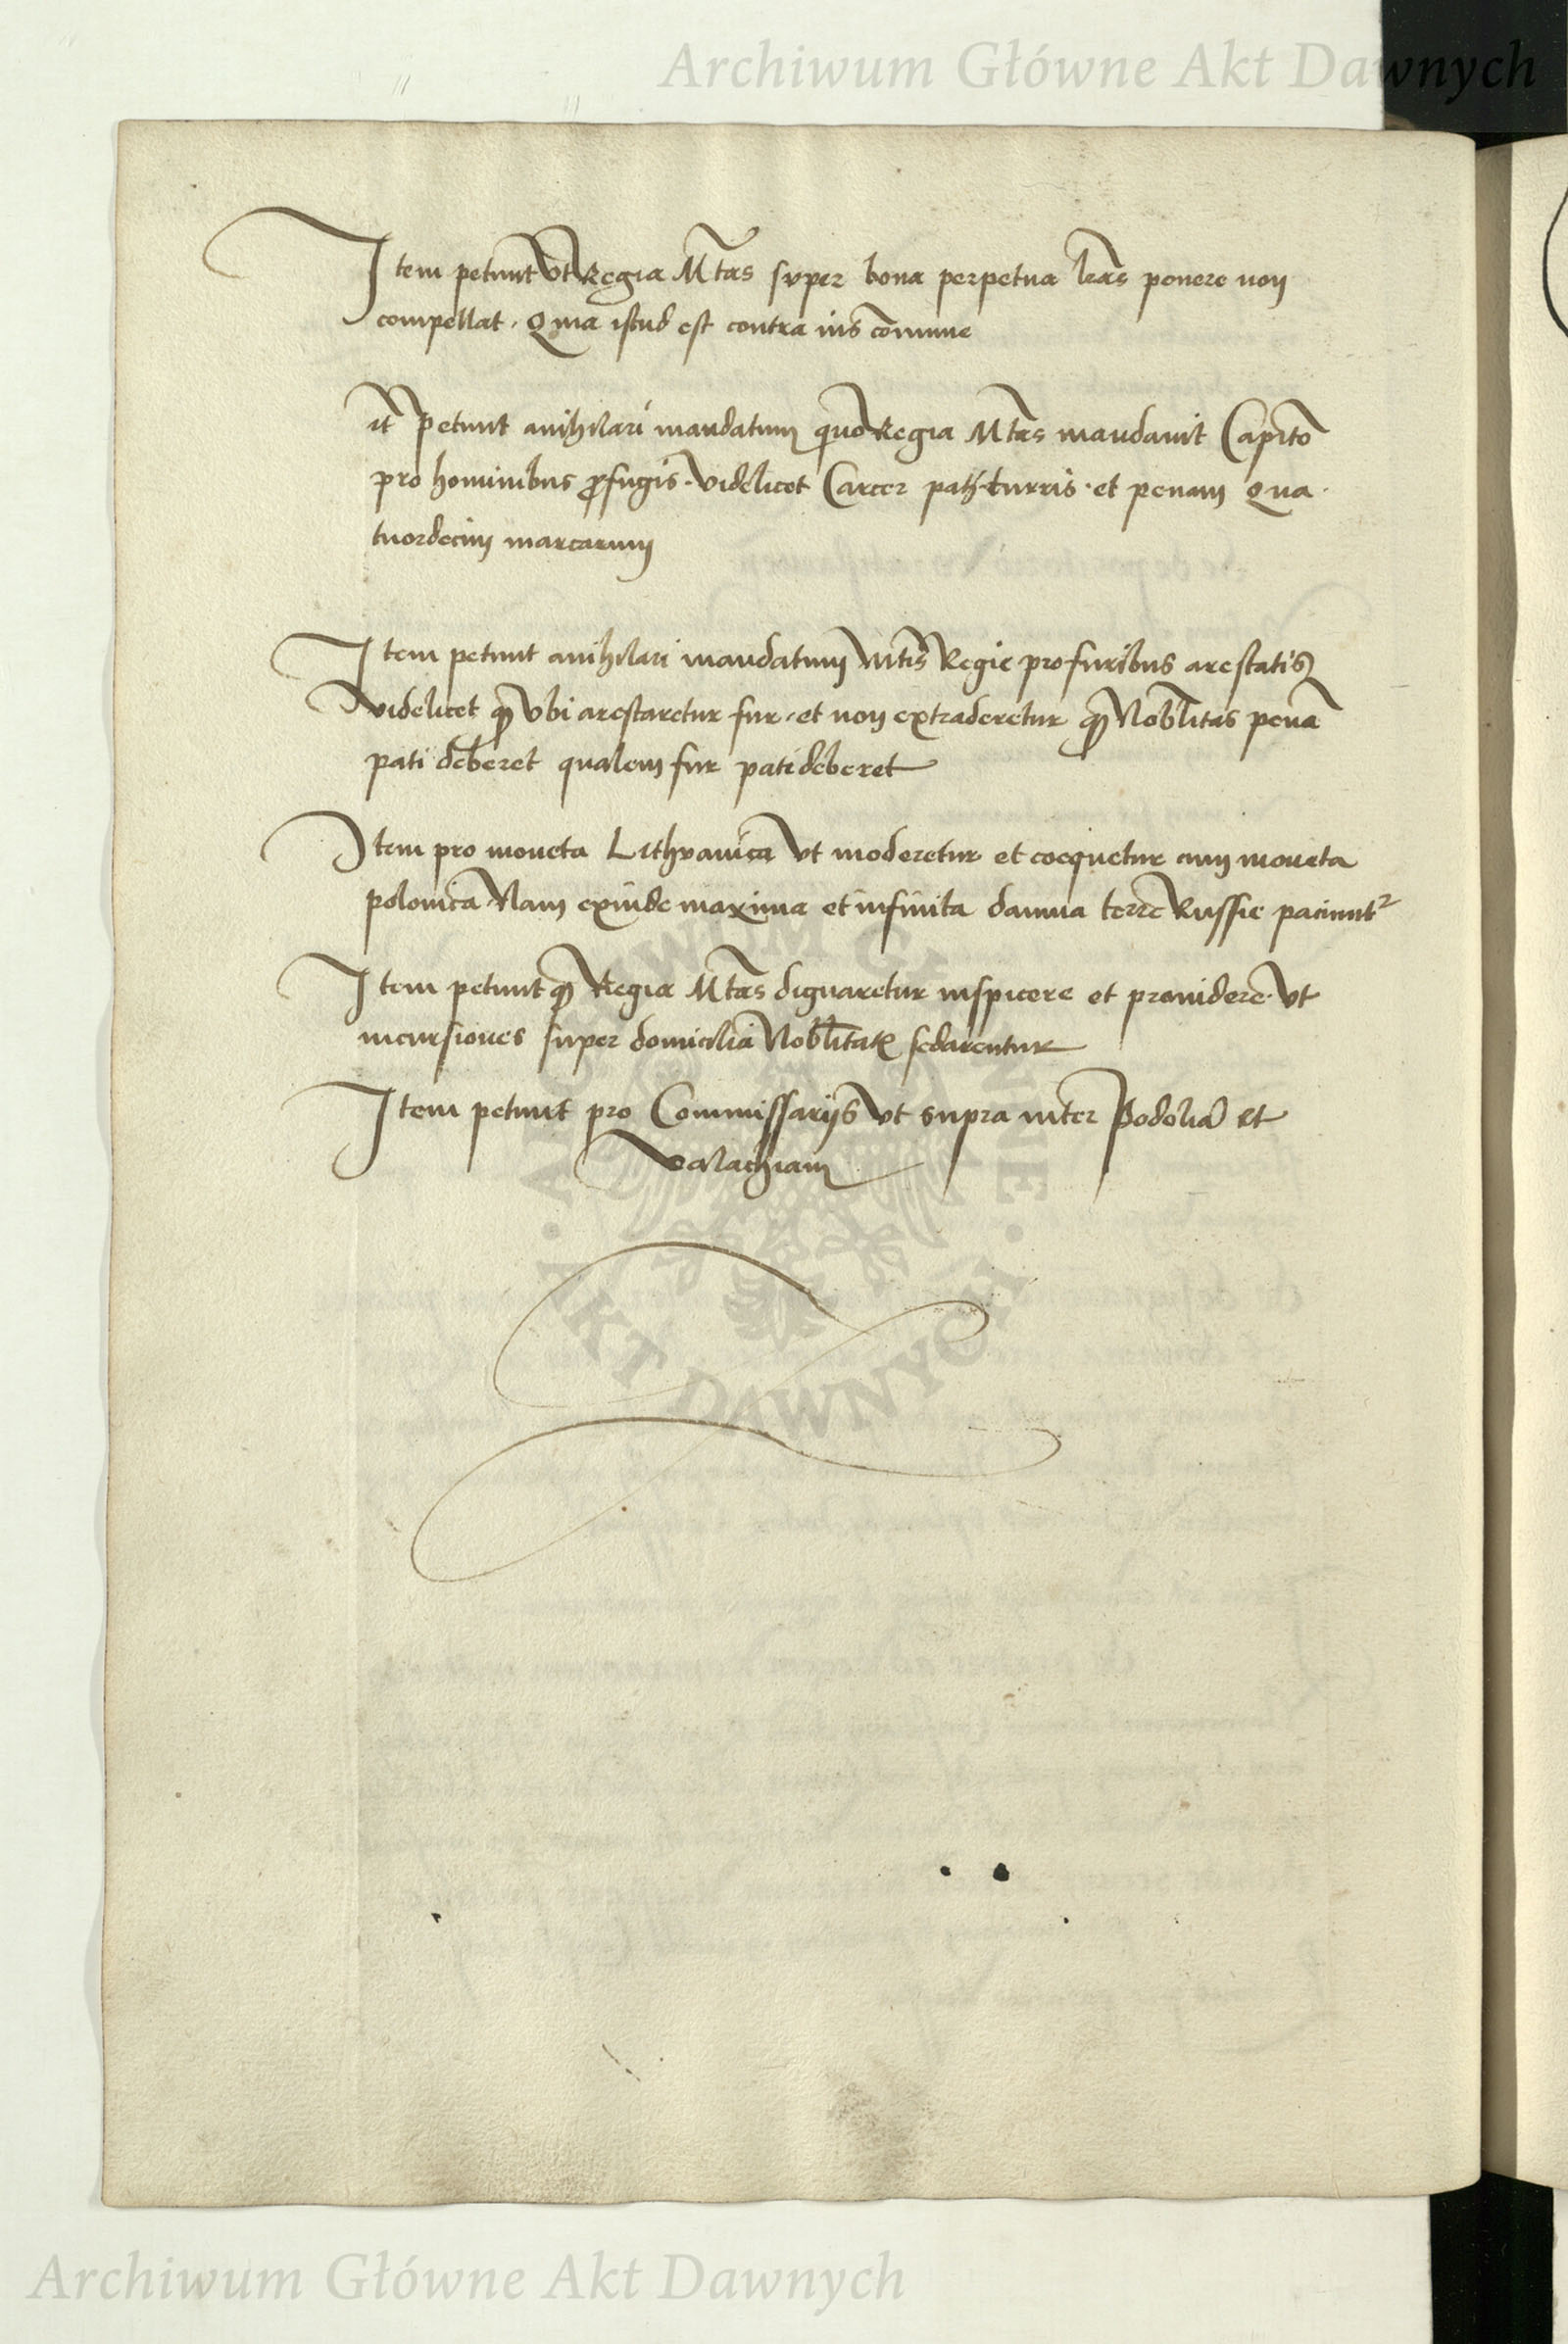 Archiwum Główne Akt Dawnych
Item petunt vt Regia Mtas super bona perpetua lras ponere non
compellat. Quia istud est contra ius comune
it petunt anihilari mandatum quo Regia Mtas mandauit Capito
pro hominibus profugis. videlicet Carcer turris. et penam Qua
tuordecim marcarum
Item petunt anihilari mandatum Mtis Regie pro furibus arestatis
videlicet qd vbi arestaretur fur. et non extraderetur qd Nobilitas pena
pati deberet qualem fur pati deberet
Item pro moneta Lithvanica vt moderetur et coequetur cum moneta
polonica Nam exinde maxima et infinita damna terre Russie paciunt
Item petunt qd Regia Mtas dignaretur inspicere et prouidere. vt
incursiones super domicilia Nobilitatis sedarentur
Item petunt pro Commissarijs vt supra inter Podolia et
valachiam
ARCHIWUM GŁÓWNE AKT DAWNYCH
Archiwum Główne Akt Dawnych